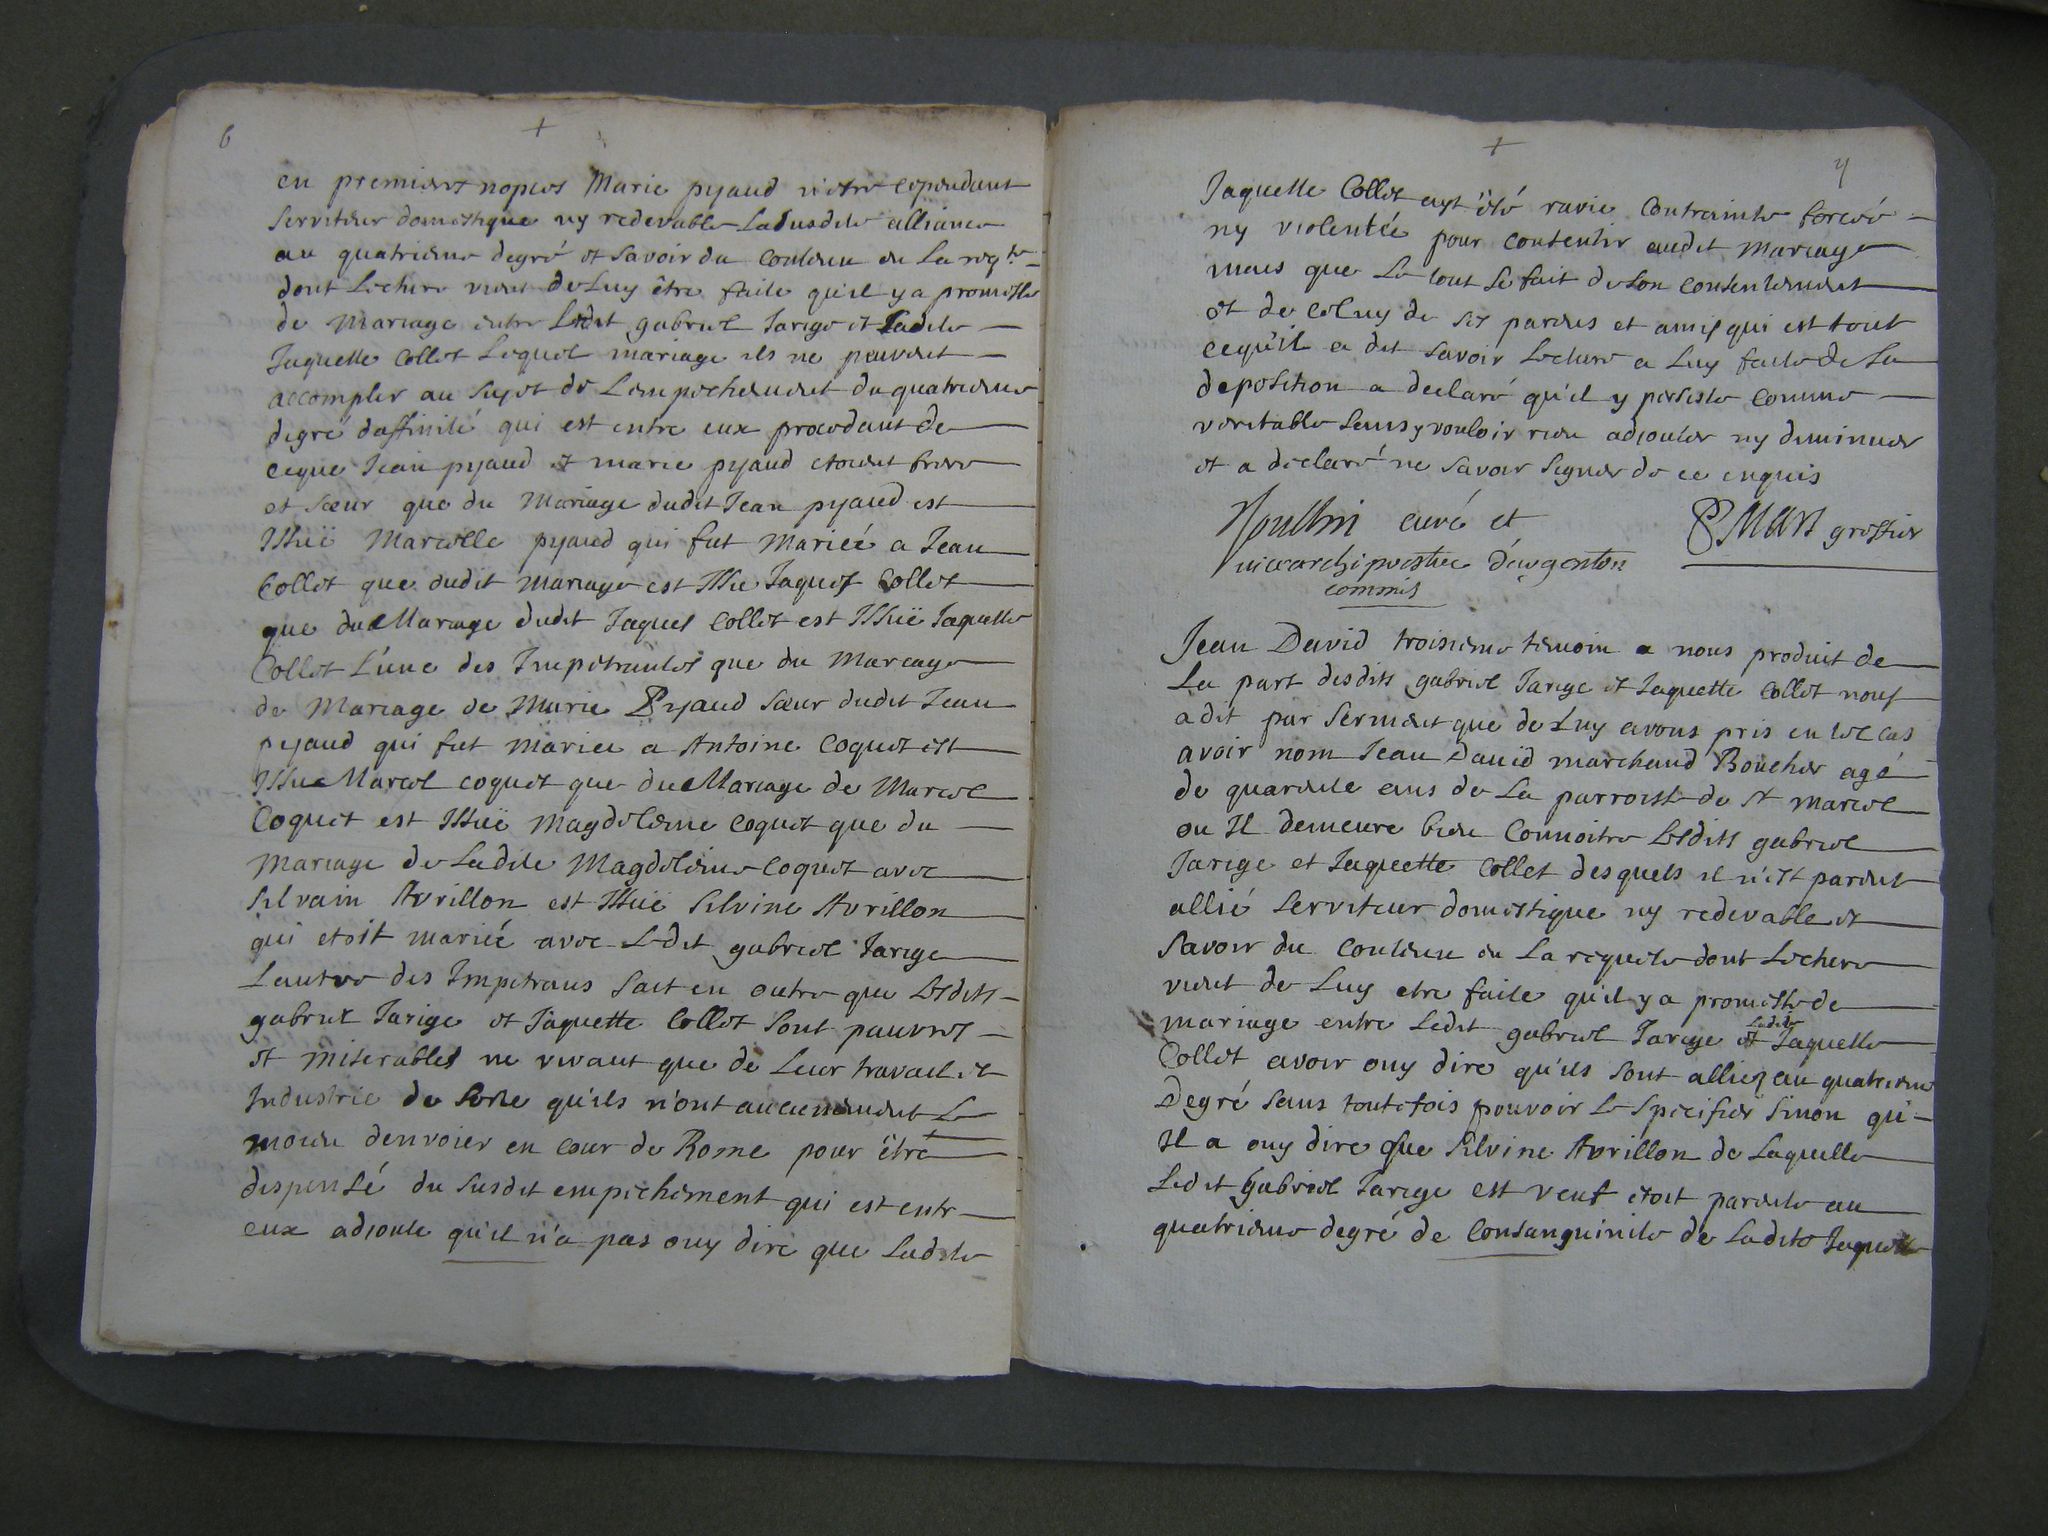 6
+
en premieres nopces Marie pyaud n'etre cependant
serviteur domestique ny redevable La susdite alliance
au quatrieme degré et savoir du contenu en La reqte
dont Lecture vient de Luy être faite qu'il y a promesse
de Mariage entre Ledit gabriel Jarige et Ladite
Jaquette Collet Lequel mariage ils ne peuvent
accomplir au sujet de L'empechement du quatrieme
degré daffinité qui est entre eux procedant de
ceque Jean pyaud et marie pyaud etoient frere
et sœur que du Mariage dudit Jean pyaud est
Issuë Marcelle pyaud qui fut Mariée a Jean
Collet que dudit mariage est Issu Jaques Collet
que du Mariage dudit Jaques Collet est Issuë Jaquette
Collet L'une des Impetrantes que du Mariage
de Mariage de Marie Pyaud sœur dudit Jean
pyaud qui fut mariée a Antoine Coquet est
Issu Marcel coquet que du Mariage de Marcel
Coquet est Issuë Magdeleine Coquet que du
Mariage de Ladite Magdeleine Coquet avec
Silvain Avrillon est Issuë Silvine Avrillon
qui etoit mariée avec Ledit gabriel Jarige
L'autre des Impetrans sait en outre que Lesdits
gabriel Jarige et Jaquette Collet sont pauvres
et miserables ne vivant que de Leur travail et
Industrie de sorte qu'ils n'ont aucunement Le
moien denvoier en cour de Rome pour être
dispensé du susdit empechement qui est entr
eux adjoute qu'il n'a pas ouy dire que Ladite
+
7
Jaquette Collet ayt été ravie Contrainte forcée
ny violentée pour consentir audit Mariage
mais que Le tout se fait de son consentement
et de celuy de ses parens et amis qui est tout
cequ'il a dit savoir Lecture a Luy faite de sa
deposition a declaré qu'il y persiste comme
veritable sans y vouloir rien adjouter ny diminuer
et a declaré ne savoir signer de ce enquis
curé et
vicearchiprestre d'argenton
commis
greffier
Jean David troisieme temoin a nous produit de
La part desdits gabriel Jarige et Jaquette Collet nous
a dit par serment que de Luy avons pris en tel cas
avoir nom Jean David marchand Boucher agé
de quarente ans de La parroisse de St marcel
ou Il demeure bien Connoitre Lesdits gabriel
Jarige et Jaquette Collet desquels il n'est parent
allié serviteur domestique ny redevable et
savoir du contenu en La requete dont Lecture
vient de Luy etre faite qu'il y a promesse de
mariage entre Ledit gabriel Jarige et Ladite Jaquette
Collet avoir ouy dire qu'ils sont alliez au quatrieme
Degré sans toutefois pouvoir Le specifier sinon qu'
Il a ouy dire que Silvine Avrillon de Laquelle
Ledit Gabriel Jarige est veuf etoit parente au
quatrieme degré de Consanguinite de Ladite Jaquette